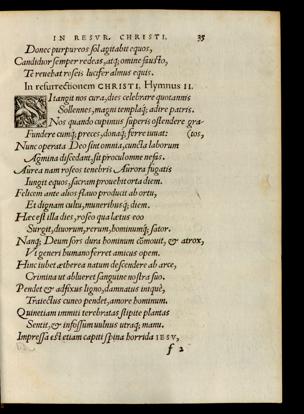 IN RESVR. CHRISTI. 35
Donec purpureos sol agitabit equos,
Candidior semper redeas, atq; omine fausto,
Te reuehat roseis lucifer almus equis.
In resurrectionem CHRISTI, Hymnus II.
NI tangit nos cura, dies celebrare quotannis
Sollennes, magni templaq; adire patris.
Nos quando cupimus superis ostendere gra-
Fundere cumq; preces, donaq; ferre iuuat: (tos,
Nunc operata Deo sint omnia, cuncta laborum
Agmina discedant, sit procul omne nefas.
Aurea nam roseos tenebris Aurora fugatis
Iungit equos, sacram prouehit orta diem.
Felicem ante alios flauo producit ab ortu,
Et dignam cultu, muneribusq; diem.
Hæc est illa dies, roseo qua lætus eoo
Surgit, diuorum, rerum, hominumq; sator.
Nanq; Deum sors dura hominum cōmouit, & atrox,
Vt generi humano ferret amicus opem.
Hinc iubet ætherea natum descendere ab arce,
Crimina ut ablueret sanguine nostra suo.
Pendet & adfixus ligno, damnatus iniquè,
Traiectus cuneo pendet, amore hominum.
Quinetiam immiti terebratas stipite plantas
Sentit, & infossum uulnus utraq; manu.
Impressa est etiam capiti spina horrida IESV,
f 2